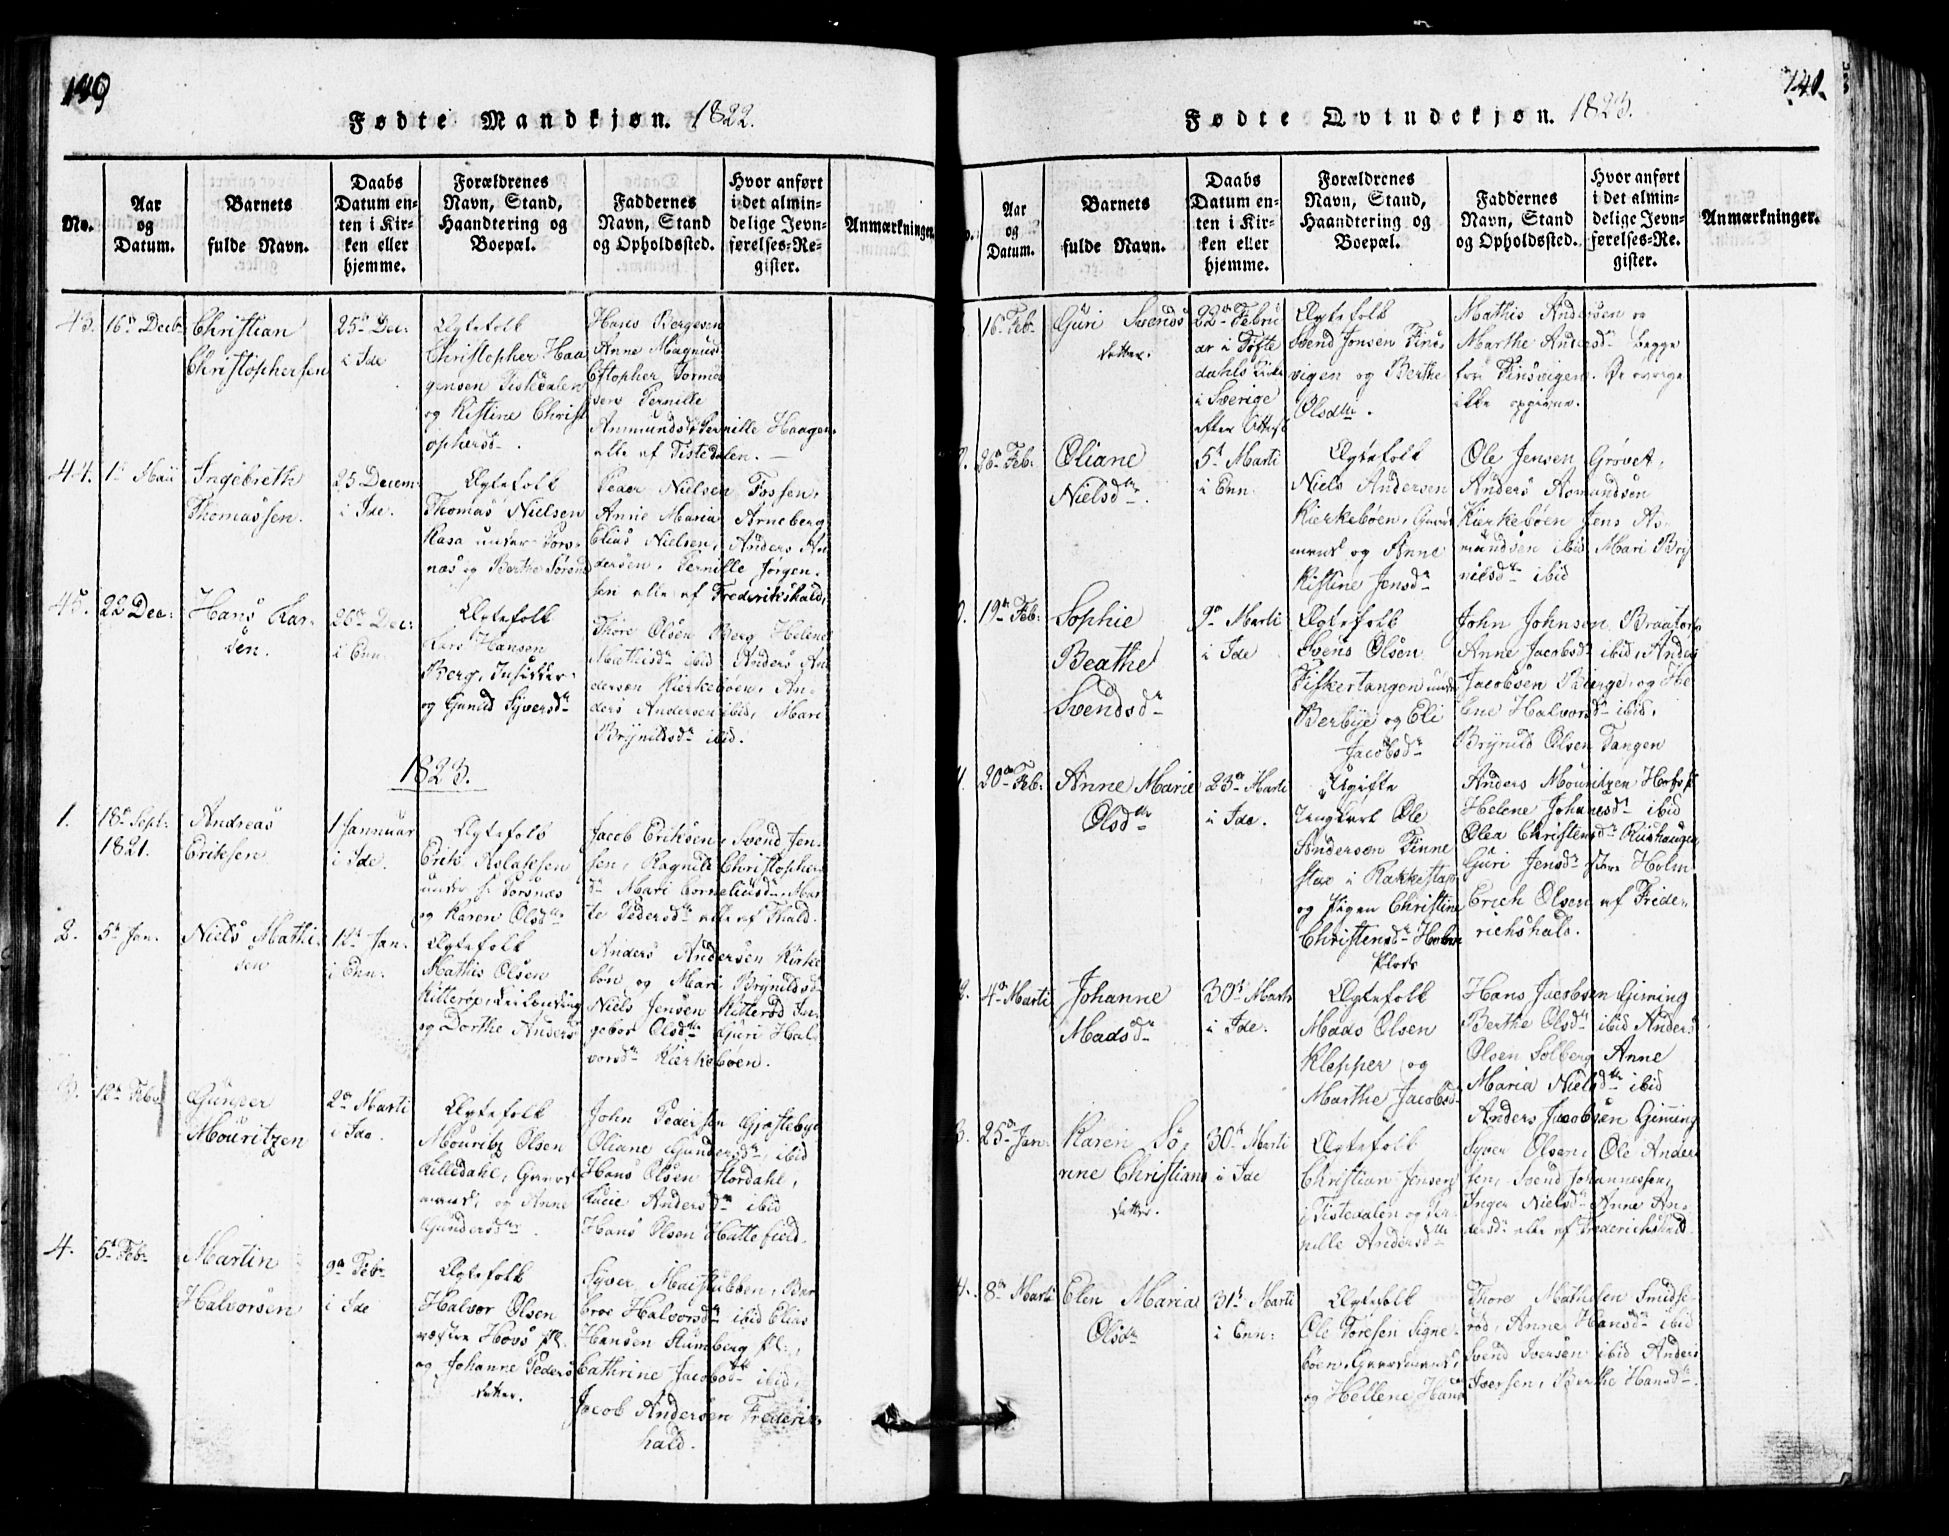 149
Fødte Mandkjøn. 1822.
No.
Aar
og
Datum.
Barnets
fulde Navn.
Daabs
Datum en-
ten i Kir-
ken eller
hjemme.
Forældrenes
Navn, Stand,
Haandtering og
Boepæl.
Faddernes
Navn, Stand
og Opholdssted.
Hvor anført
i det almin-
delige Jevn-
førelses-Re-
gister.
Anmærkninger.
43.
16de Decb.
Christian
Christophersen
25de Dec:
i Ide
Ægtefolk
Christopher Haa
gensen Tistedalen
og Kistine Christ
ophersd.
Hans Børgesen
Anne Magnusd
Pernille
Ammundsd, Pernille Haagen
alle af Tistedalen.
44.
1ste Maii
Ingebreth
Thomassen.
25 Decem:
i Ide.
Ægtefolk
Thomas Nielsen
Rasa under Tors-
næs og Berthe Sørensd
Peder Nielsen Fossen,
Anne Maria Arneberg
Elias Nielsen, Anders An
dersen, Pernille Jørgen-
sen alle af Frederikshald,
45.
22 Dec:
Hans Lar-
sen.
26de Dec:
i Enn.
Ægtefolk
Lars Hansen
Berg, Insidder
og Gunild Syversdr
Thore Olsen Berg, Helene
Mathisdr ibid Anders An
dersen Kierkebøen, An-
ders Andersen ibid, Mari
Brynildsdr ibid.
1823.
1.
18de Sept:
1821.
Andreas
Eriksen
1 Januuar
i Ide.
Ægtefolk
Erik Aslaksen
under f. Torsnæs
og Karen Olsdtr
Jacob Eriksen, Svend Jen-
sen, Ragnild Christopher
dr Mari Corneliusdr Mar-
te Pedersdr alle af Fhald.
2.
5te Jan.
Niels Mathi-
sen
12te Jan:
i Enn.
Ægtefolk
Mathis Olsen
Kitterød, Leilending
og Dorthe Anders
Anders Andersen Kirke
bøn og Mari Brynildsdr
Niels Jensen Kitterød In-
gebor Olsdtr Guri Hal-
vorsdr Kierkebøen.
3.
12te Febr
Gunder
Mouritzen
2den Marti
i Ide.
Ægtefolk
Mouritz Olsen
Lilledahl, Gaard
mand, og Anne
Gundersdtr
John Pedersen Gjæstebye
Oliane Gundersdr ibid
Hans Olsen Stordahl,
Lucie Andersdr ibid
Hans Olsen Hattefield.
4.
5te Febr
Martin
Halvorsen
9de Febr
i Ide
Ægtefolk
Halvor Olsen
væstre Hovs Pl.
og Johanne Peders
datter.
Syver Maistubben, Bar
broe Halvorsdr ibid Elias
Hansen Rumberg Pl:,
Cathrine Jacobsdr ibid,
Jacob Andersen Frederiks
hald.
141.
Fødte Qvindekjøn. 1823.
Aar
og
Datum.
Barnets
fulde Navn.
Daabs
Datum en-
ten i Kir-
ken eller
hjemme.
Forældrenes
Navn, Stand,
Haandtering og
Boepæl.
Faddernes
Navn, Stand
og Opholdssted.
Hvor anført
i det almin-
delige Jevn-
førelses-Re-
gister.
Anmærkninger.
16de Feb.
Guri Svends
datter.
22de Febru
ar i Tofte
dahls Kirke
i Sverige
efter Attest
Ægtefolk
Svend Jonsen Fins-
vigen og Berthe
Olsdtr.
Mathis Andersen og
Marthe Andersdr begge
fra Finsvigen. De øvrige
ikke opgivne.
26de Feb:
Oliane
Nielsdtr.
5te Marti
i Enn.
Ægtefolk
Niels Andersen
Kierkebøen, Gaard
mand og Anne
Kistine Jensdr
Ole Jensen Grøvet,
Anders Asmundsen
Kierkebøen Jens As-
mundsen ibid Mari Bry
nildsdtr ibid
19de Feb:
Sophie
Beathe
Svendsdr
9de Marti
i Ide
Ægtefolk
Svend Olsen
Fiskertangen under
Berbye og Eli
Jacobsdr
John Johnsen Braatorp
Anne Jacobsdr ibid, Anders
Jacobsen Bierge, og He
lene Halvorsdr ibid.
Brynild Olsen Tangen
20de Feb:
Anne Marie
Olsdtr
23de Marti
i Ide.
Ugifte
Ungkarl Ole
Andersen Finne
stae i Rakkestad
og Pigen Christine
Christensdr Holm
Plads
Anders Mouritzen
Helene Johanesdr ibid
Olea Christensdr Riishaugen
Guri Jensdr Store Holm
Erich Olsen af Frede-
richshald.
4de Marti
Johanne
Madsdr
30te Marti
i Ide.
Ægtefolk
Mads Olsen
Klepper og
Marthe Jacobsd
Hans Jacobsen Giming
Berthe Olsdr ibid Anders
Olsen Solberg Anne
Maria Nielsdtr ibid
Anders Jacobsen Giming
25de Jan:
Karen So-
rine Christians
datter.
30te Marti
i Ide
Ægtefolk
Christian Jensen
i Tistedalen og Per
nille Andersdtr
Syver Olsen, Ole Ander
sen, Svend Johannessen,
Inger Nielsdr Anne An-
dersdr alle af Frederichshald
8de Marti
Elen Maria
Olsdr
31te Marti
i Enn:
Ægtefolk
Ole Toresen Signe-
bøen, Gaardmand,
og Hellene Hans
Thore Mathesen Smidse-
rød, Anne Hansdr ibid
Svend Iversen ibid Anders
Iversen, Berthe Hansdr.